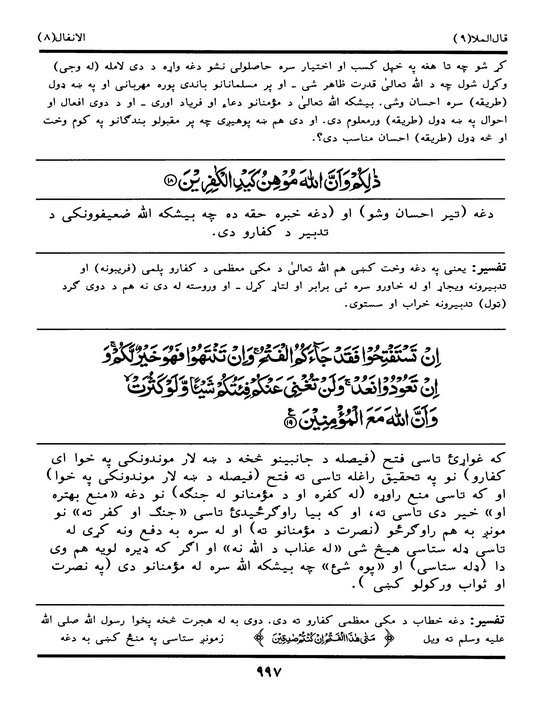 قال الملا(۹) الانفال(۸)
کړ شو چه تا هغه په خپل کسب او اختیار سره حاصلولی نشو دغه واړه د دی لامله (له وجی)
وکړل شول چه د الله تعالیٰ قدرت ظاهر شی ـ او پر مسلمانانو باندی پوره مهربانی او په ښه ډول
(طریقه) سره احسان وشی. بیشکه الله تعالیٰ د مؤمنانو دعاء او فریاد اوری ـ او د دوی افعال او
احوال په ښه ډول (طریقه) ورمعلوم دی. او دی هم ښه پوهیږی چه پر مقبولو بندګانو په کوم وخت
او څه ډول (طریقه) احسان مناسب دی؟.
ذٰلِكُمْ وَاَنَّ اللّٰهَ مُوْهِنُ كَيْدِ الْكٰفِرِيْنَ ⑱
دغه (تیر احسان وشو) او (دغه خبره حقه ده چه بیشکه الله ضعیفوونکی د
تدبیر د کفارو دی.
تفسیر: یعنی په دغه وخت کښی هم الله تعالیٰ د مکی معظمی د کفارو پلمی (فریبونه) او
تدبیرونه ویجاړ او له خاورو سره ئی برابر او لتاړ کړل ـ او وروسته له دی نه هم د دوی ګرد
(ټول) تدبیرونه خراب او سستوی.
اِنْ تَسْتَفْتِحُوْا فَقَدْ جَآءَكُمُ الْفَتْحُ ۚ وَاِنْ تَنْتَهُوْا فَهُوَ خَيْرٌ لَّكُمْ ۚ وَ
اِنْ تَعُوْدُوْا نَعُدْ ۚ وَلَنْ تُغْنِيَ عَنْكُمْ فِئَتُكُمْ شَيْـًٔا وَّلَوْ كَثُرَتْ ۙ
وَاَنَّ اللّٰهَ مَعَ الْمُؤْمِنِيْنَ ⑲
که غواړئ تاسی فتح (فیصله د جانبینو څخه د ښه لار موندونکی په خوا ای
کفارو) نو په تحقیق راغله تاسی ته فتح (فیصله د ښه لار موندونکی په خوا)
او که تاسی منع راوړه (له کفره او د مؤمنانو له جنګه) نو دغه «منع بهتره
او» خیر دی تاسی ته، او که بیا راوګرځیدئ تاسی «جنګ او کفر ته» نو
مونږ به هم راوګرځو (نصرت د مؤمنانو ته) او له سره به دفع ونه کړی له
تاسی ډله ستاسی هیڅ شی «له عذاب د الله نه» او اګر که ډیره لویه هم وی
دا (ډله ستاسی) او «پوه شئ» چه بیشکه الله سره له مؤمنانو دی (په نصرت
او ثواب ورکولو کښی ).
تفسیر: دغه خطاب د مکی معظمی کفارو ته دی. دوی به له هجرت څخه پخوا رسول الله صلی الله
علیه وسلم ته ویل ﴿ مَتٰى هٰذَا الْفَتْحُ اِنْ كُنْتُمْ صٰدِقِيْنَ ﴾ زمونږ ستاسی په منځ کښی به دغه
۹۹۷